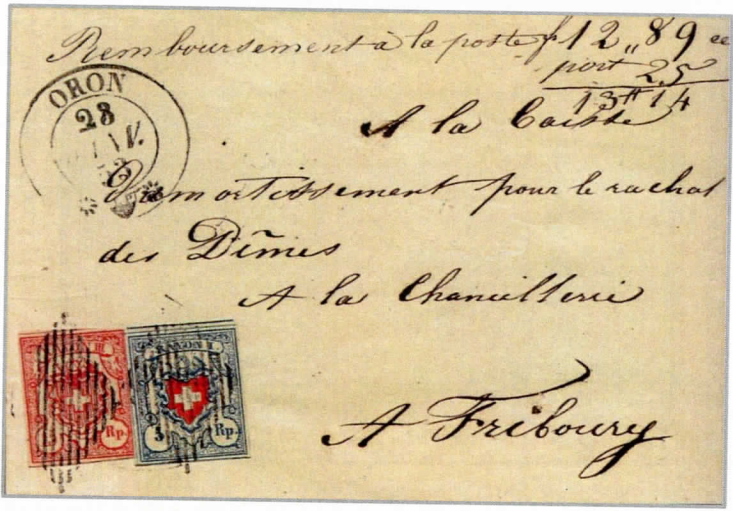 Remboursement à la poste 12 " 89
port 25
13 " 14
ORON
23
JANV.
53
A la Caisse
D'amortissement pour le rachat
des Dîmes
A la Chancellerie
RAYON I.
Rp. 5 Rp.
A Fribourg